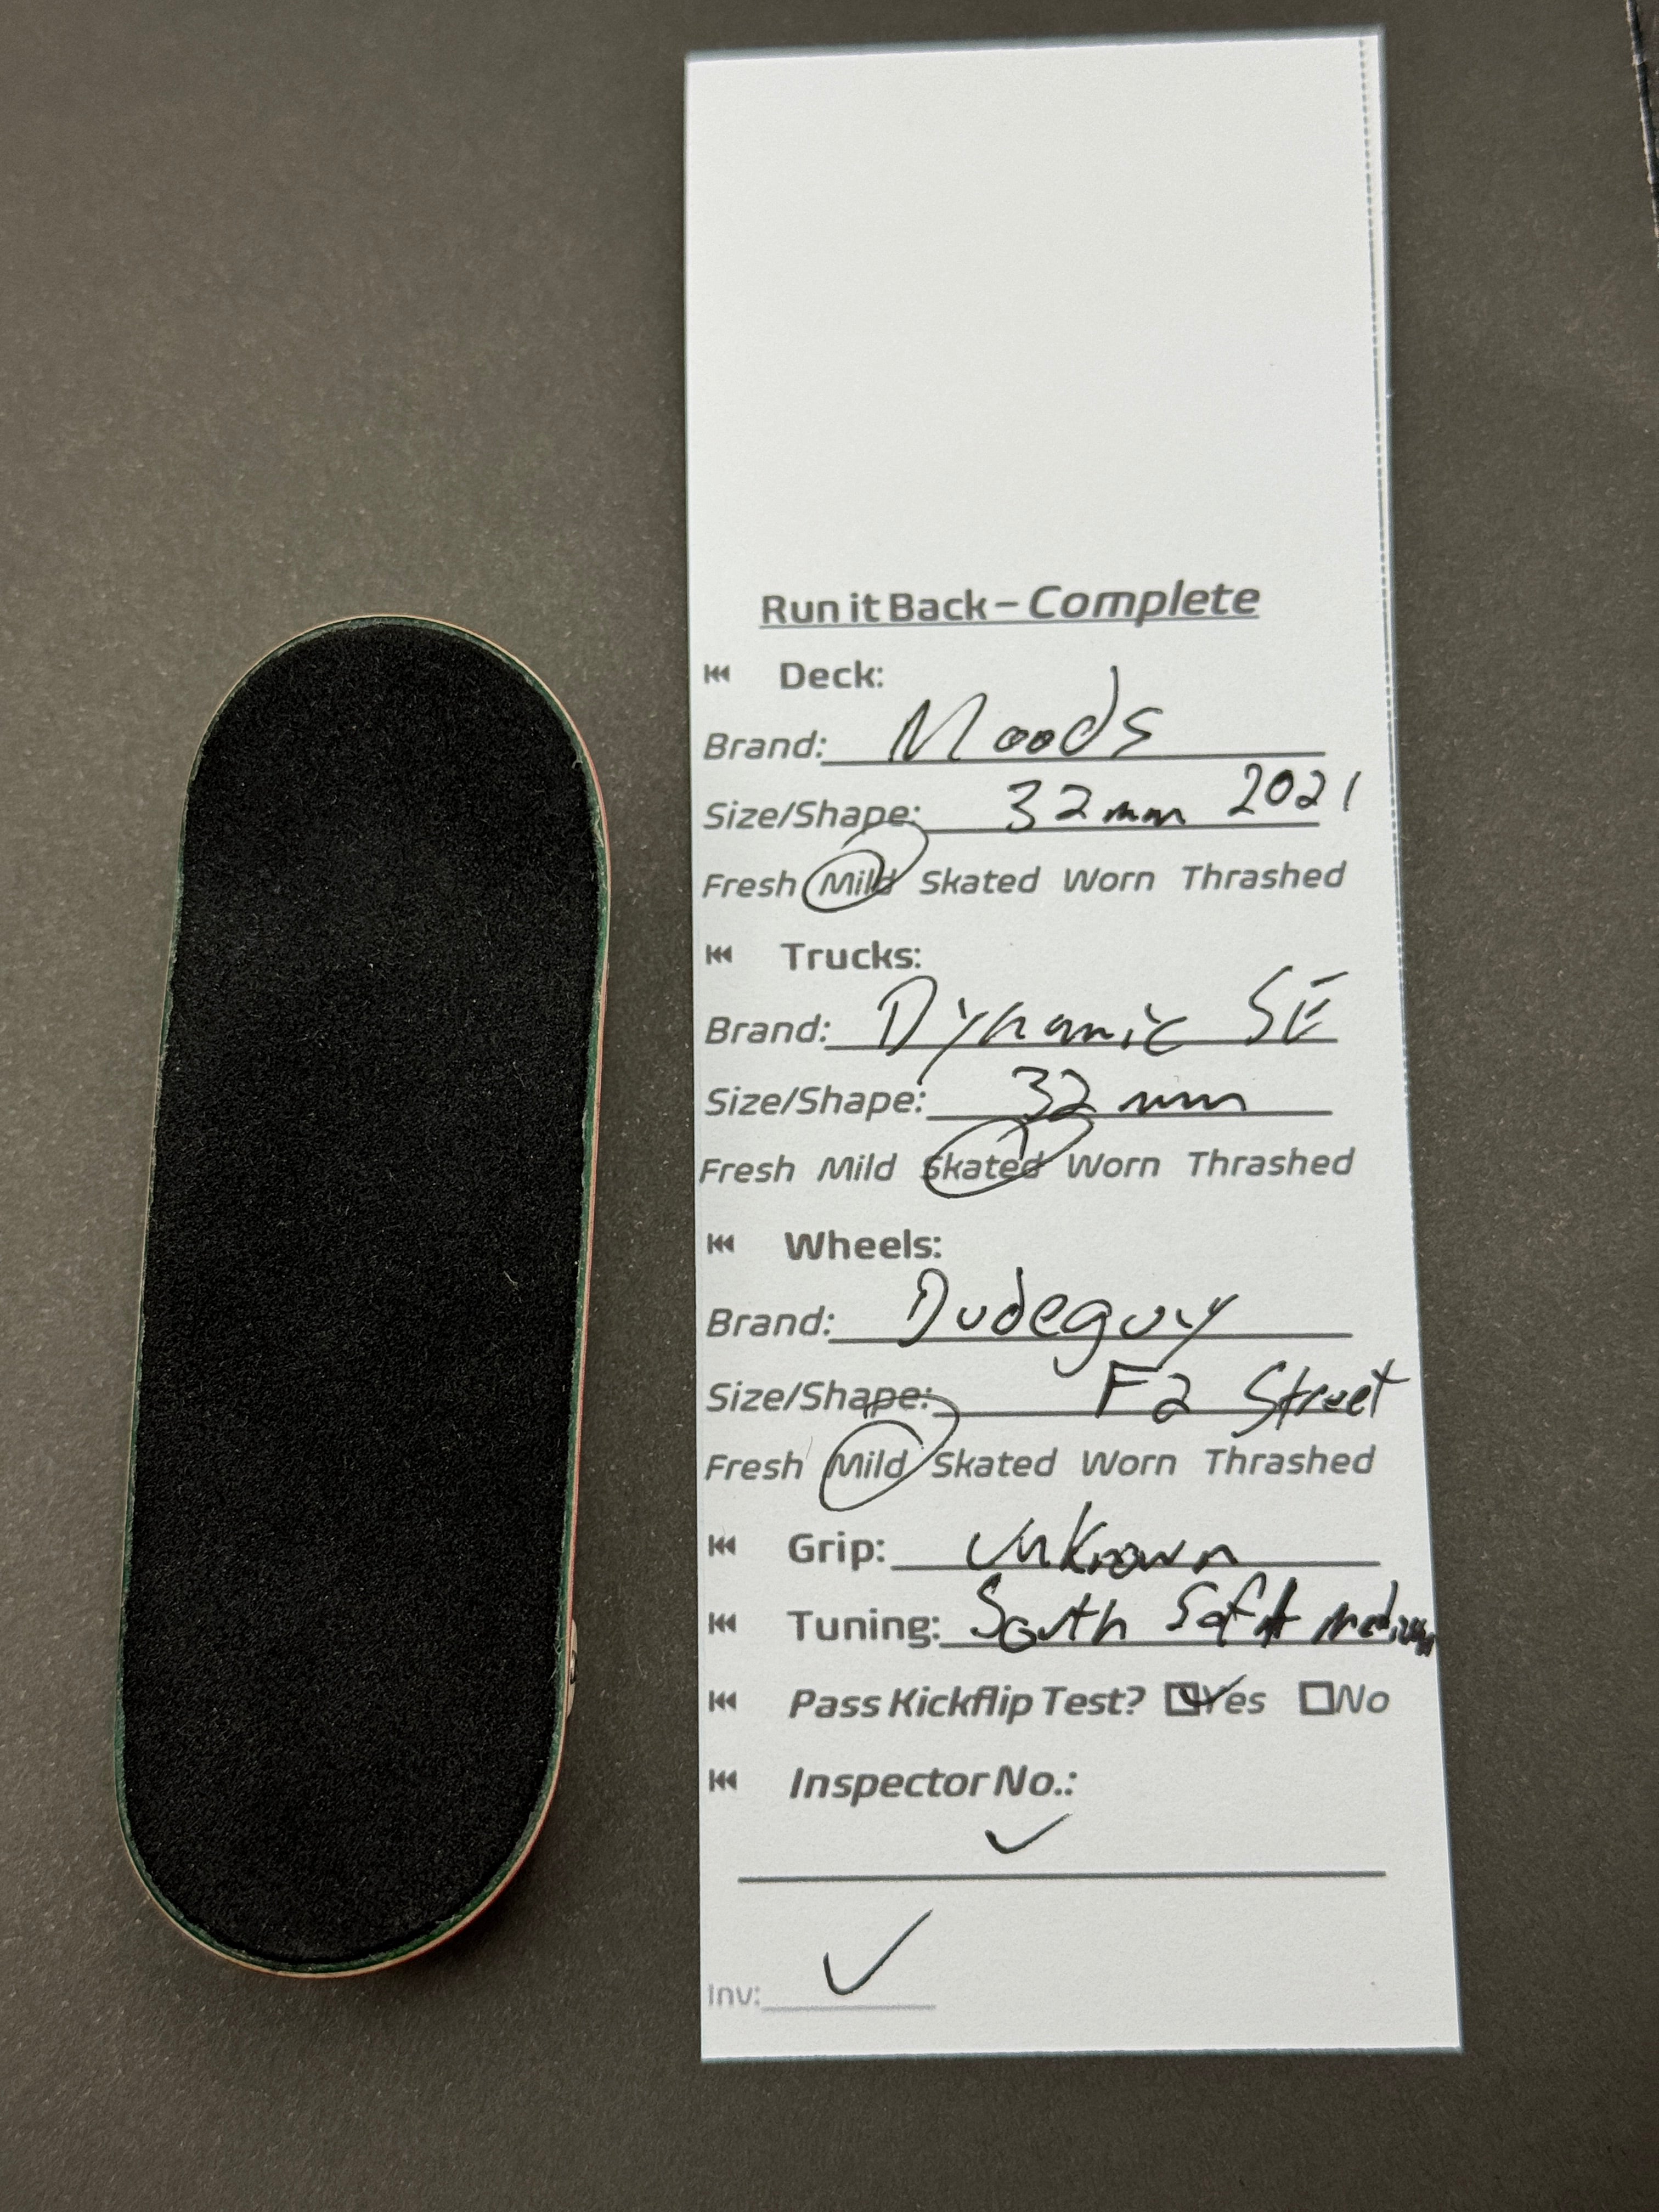 Run it Back – Complete
Deck:
Brand: Moods
Size/Shape: 32mm 2021
Fresh Mild Skated Worn Thrashed
Trucks:
Brand: Dynamic SE
Size/Shape: 32 mm
Fresh Mild Skated Worn Thrashed
Wheels:
Brand: Dudeguy
Size/Shape: F2 Street
Fresh Mild Skated Worn Thrashed
Grip: Unknown
Tuning: South Soft medium
Pass Kickflip Test? ☑Yes ☐No
Inspector No.:
✓
Inv: ✓